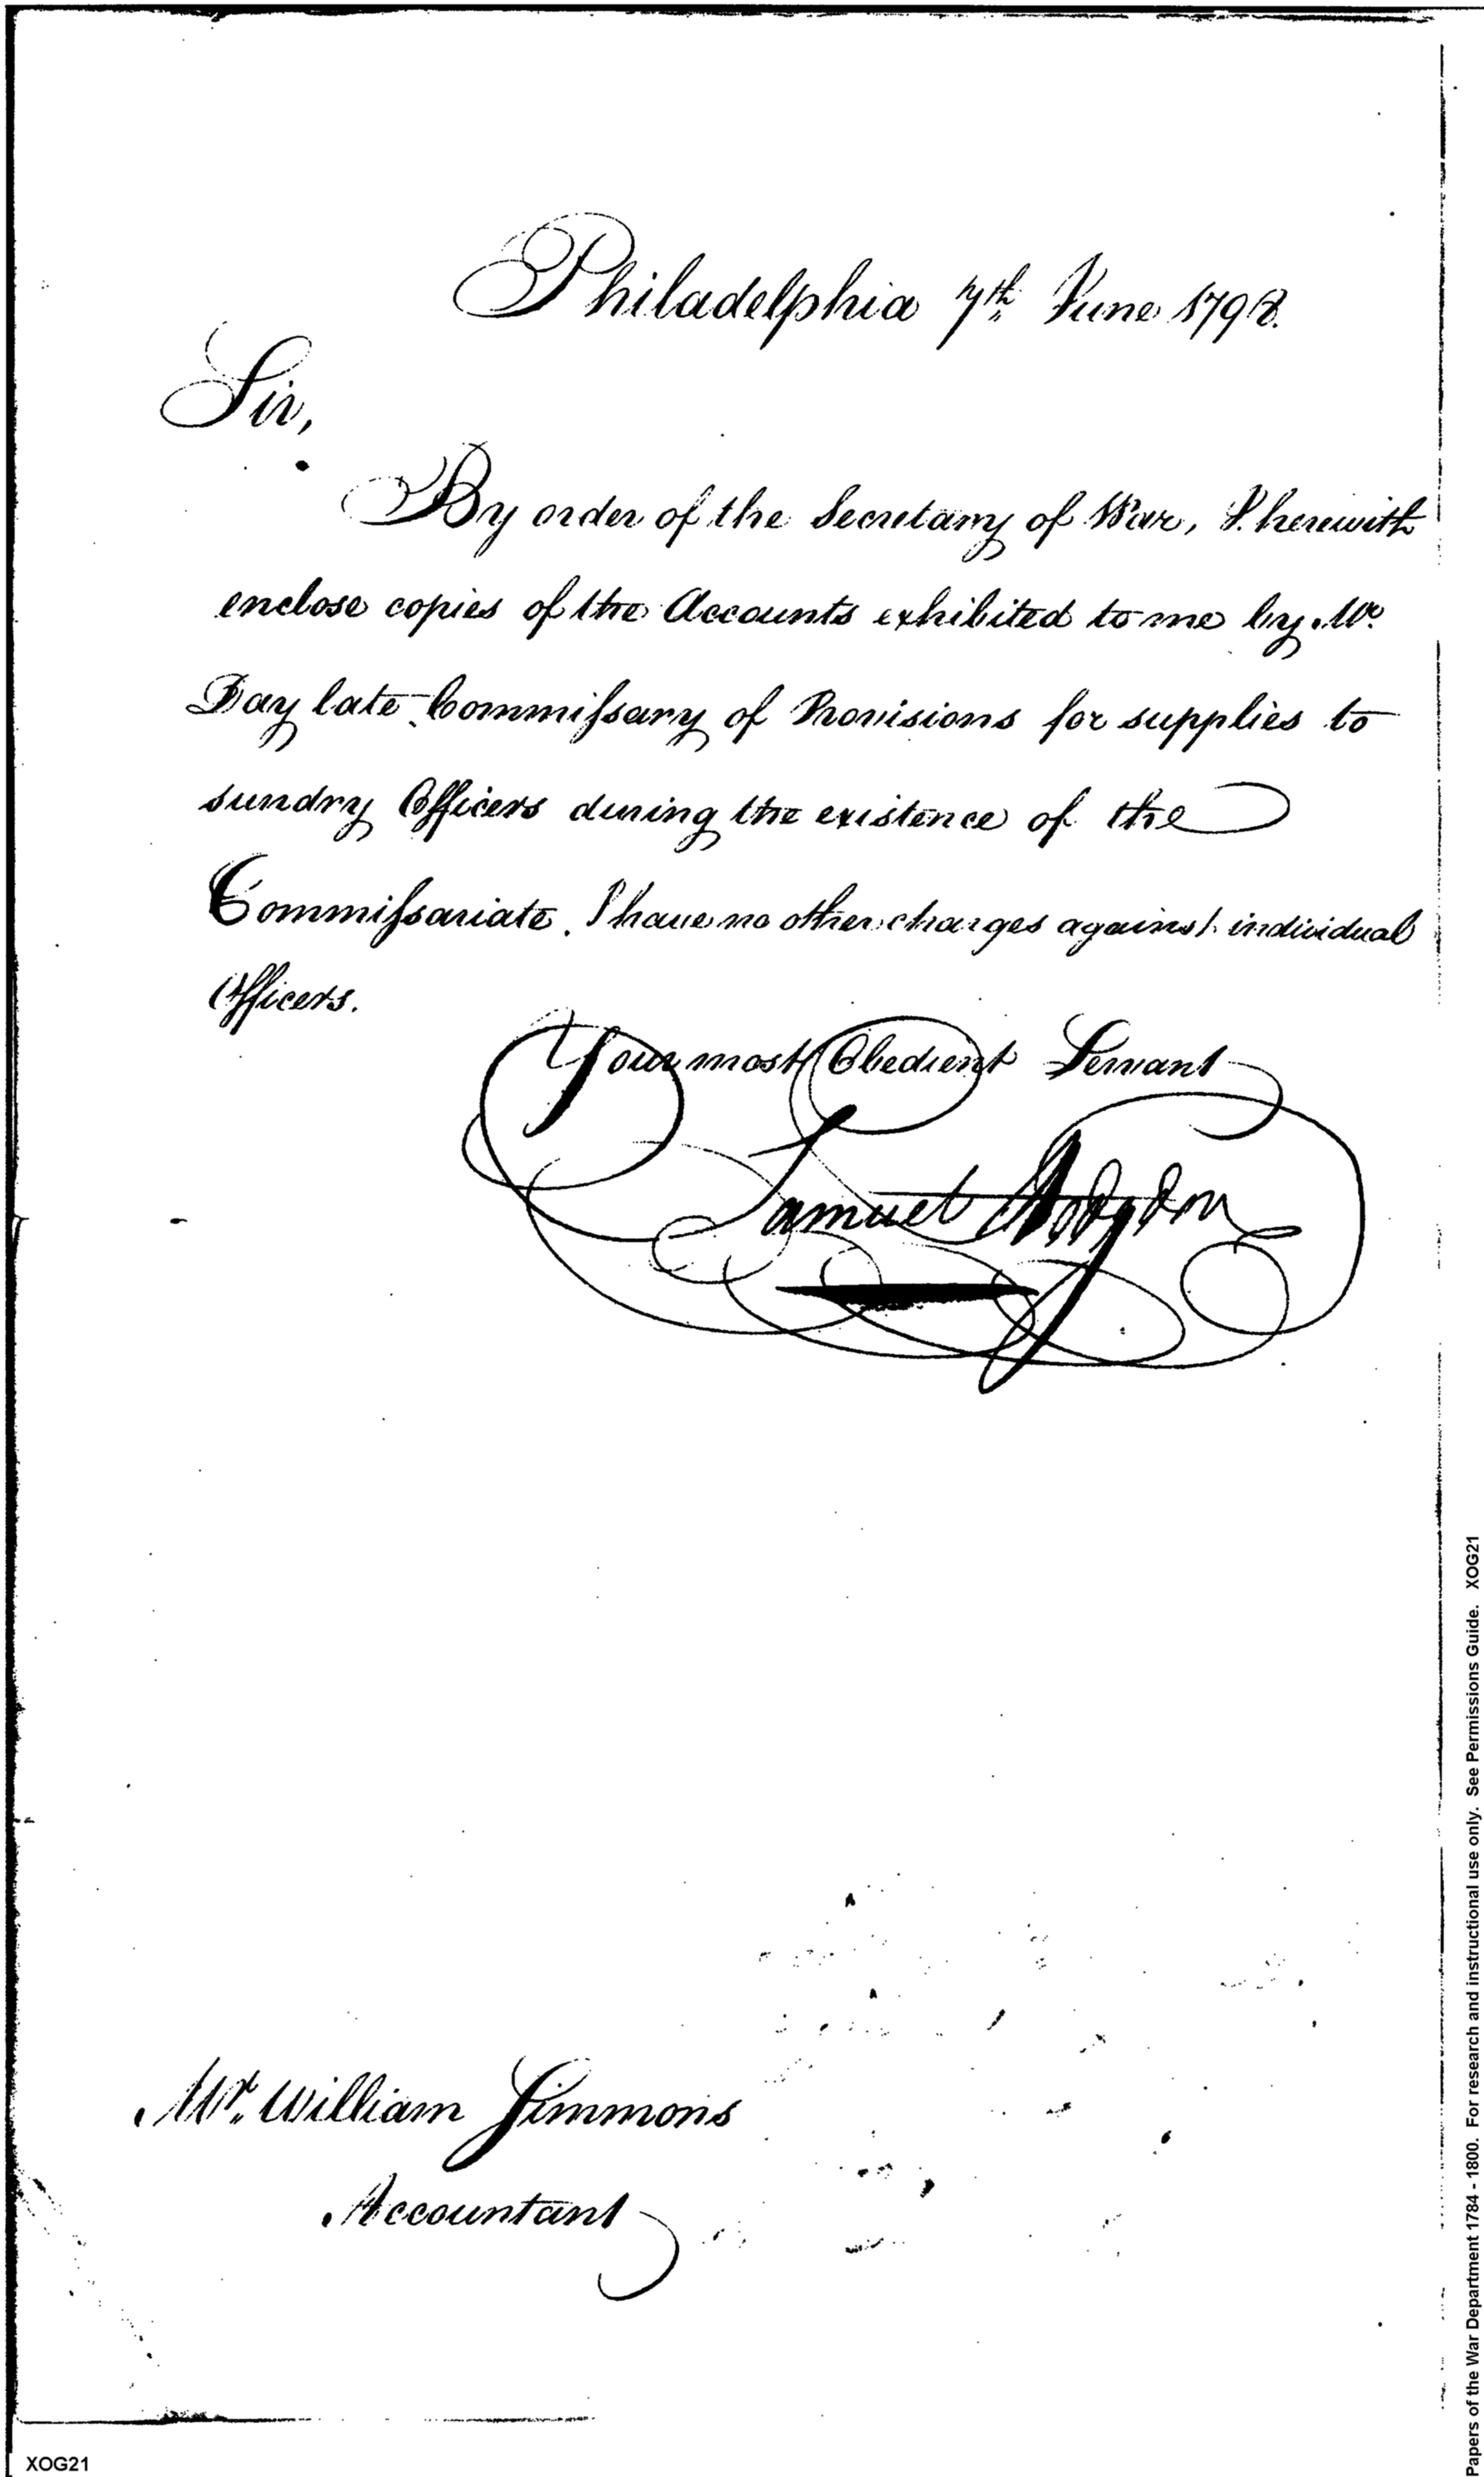 Philadelphia 7th June 1798.
Sir,
By order of the Secretary of War, I herewith
enclose copies of the Accounts exhibited to me by Mr.
Day late Commissary of Provisions for supplies to
sundry Officers during the existence of the
Commissariate. I have no other charges against individual
Officers.
Your most Obedient Servant
Samuel Hodgdon
Mr. William Simmons
Accountant
XOG21
Papers of the War Department 1784 - 1800. For research and instructional use only. See Permissions Guide. XOG21